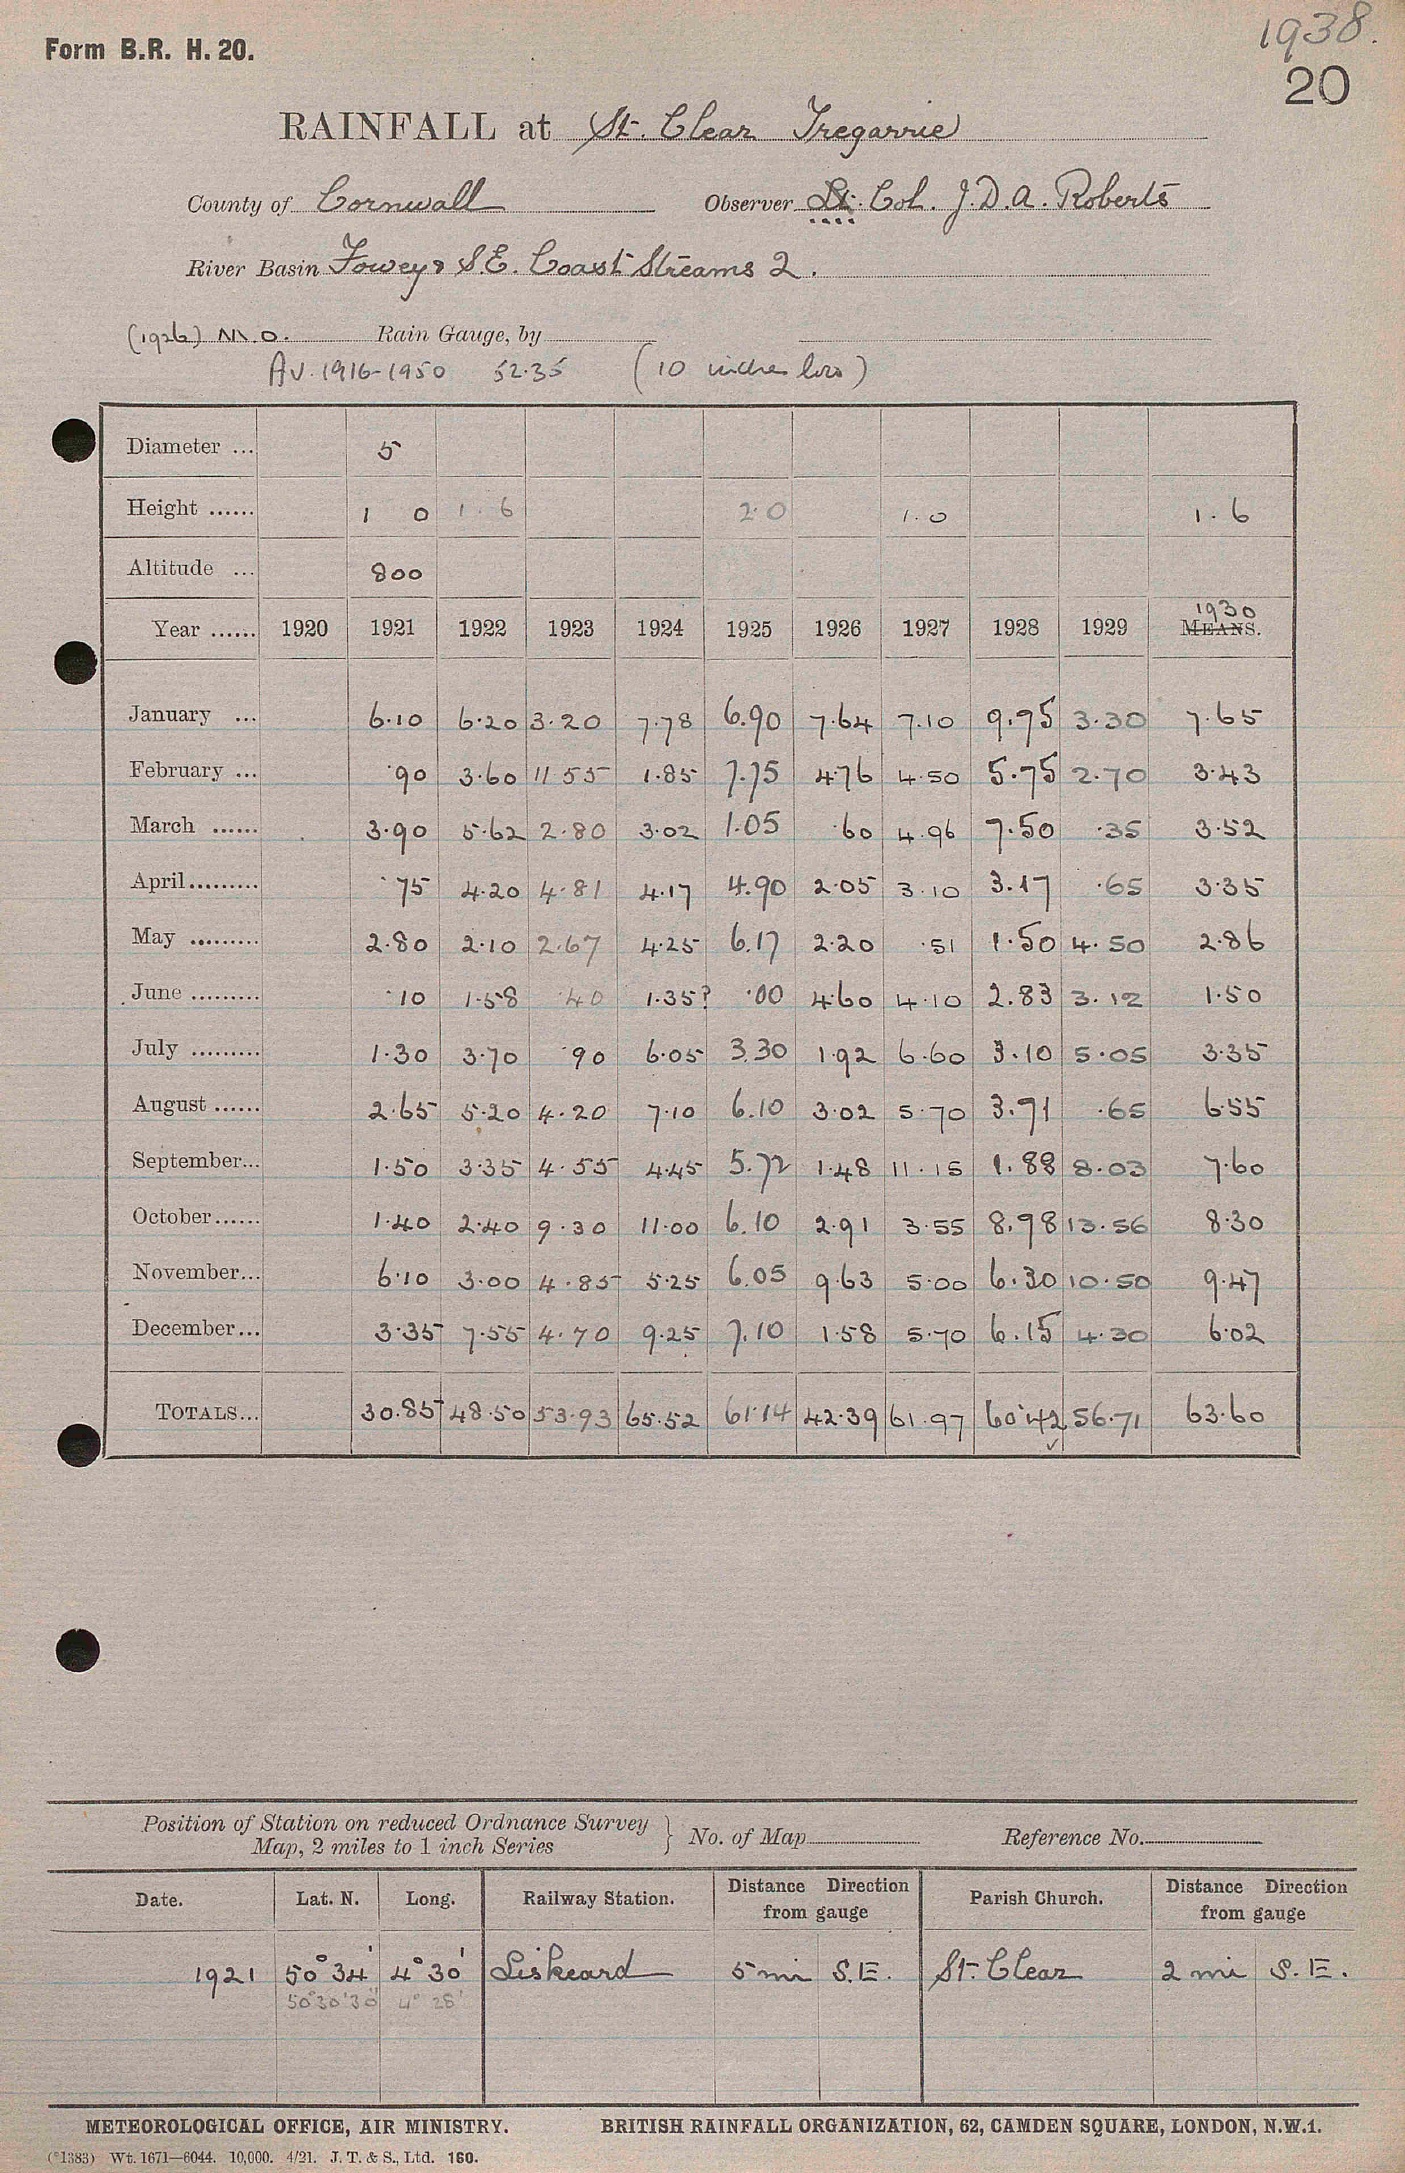 1938.
Form B.R. H. 20.
20
RAINFALL at St. Clear Tregarrie
County of Cornwall Observer Lt. Col. J. D. A. Roberts
River Basin Fowey & S.E. Coast Streams 2.
(1926) M.O. Rain Gauge, by
Av. 1916-1950 52.35 (10 inches low)
Diameter ... 5
Height ...... 1 0 1.6 2.0 1.0 1.6
Altitude ... 800
1930
Year ...... 1920 1921 1922 1923 1924 1925 1926 1927 1928 1929 MEANS.
January ... 6.10 6.20 3.20 7.78 6.90 7.64 7.10 9.75 3.30 7.65
February ... .90 3.60 11 55 1.85 7.75 4.76 4.50 5.75 2.70 3.43
March ...... 3.90 5.62 2.80 3.02 1.05 .60 4.96 7.50 .35 3.52
April......... .75 4.20 4.81 4.17 4.90 2.05 3.10 3.17 .65 3.35
May ......... 2.80 2.10 2.67 4.25 6.17 2.20 .51 1.50 4.50 2.86
June ......... .10 1.58 .40 1.35? .00 4.60 4.10 2.83 3.12 1.50
July ......... 1.30 3.70 .90 6.05 3.30 1.92 6.60 3.10 5.05 3.35
August ...... 2.65 5.20 4.20 7.10 6.10 3.02 5.70 3.71 .65 6.55
September... 1.50 3.35 4.55 4.45 5.72 1.48 11.15 1.88 8.03 7.60
October...... 1.40 2.40 9.30 11.00 6.10 2.91 3.55 8.98 13.56 8.30
November... 6.10 3.00 4.85 5.25 6.05 9.63 5.00 6.30 10.50 9.47
December... 3.35 7.55 4.70 9.25 7.10 1.58 5.70 6.15 4.30 6.02
TOTALS... 30.85 48.50 53.93 65.52 61.14 42.39 61.97 60.42 56.71 63.60
Position of Station on reduced Ordnance Survey
Map, 2 miles to 1 inch Series } No. of Map Reference No.
Date. Lat. N. Long. Railway Station. Distance Direction from gauge Parish Church. Distance Direction from gauge
1921 50° 34' 4° 30' Liskeard 5 mi S.E. St. Clear 2 mi S.E.
50° 30' 30" 4° 28'
METEOROLOGICAL OFFICE, AIR MINISTRY. BRITISH RAINFALL ORGANIZATION, 62, CAMDEN SQUARE, LONDON, N.W.1.
(*1383) Wt. 1671—6044. 10,000. 4/21. J. T. & S., Ltd. 160.